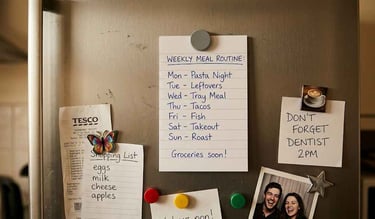 WEEKLY MEAL ROUTINE:
Mon - Pasta Night
Tue - Leftovers
Wed - Tray Meal
Thu - Tacos
Fri - Fish
Sat - Takeout
Sun - Roast
Groceries soon!
TESCO
Shopping List
eggs
milk
cheese
apples
DON'T
FORGET
DENTIST
2PM